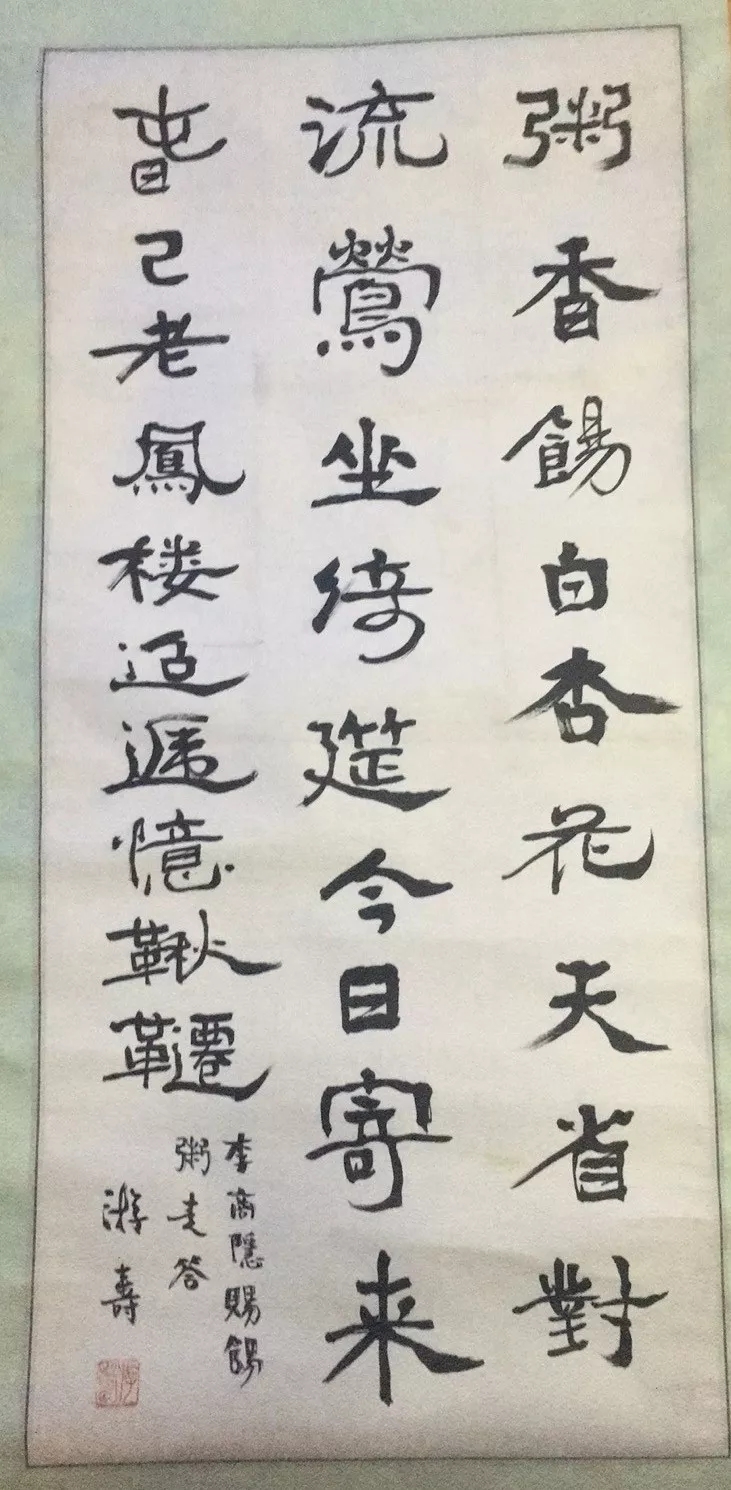 粥香餳白杏花天省對
流鶯坐綺筵今日寄来
春已老鳳楼迢遞憶鞦韆
李商隱賜餳
粥走答
游壽